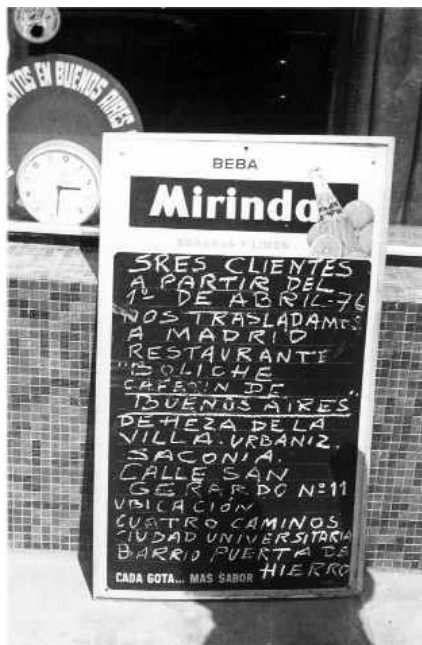 ENTOS EN BUENOS AIRES
BEBA
Mirinda
NARANJA Y LIMON
SRES CLIENTES
A PARTIR DEL
1º DE ABRIL-76
NOS TRASLADAMOS
A MADRID
RESTAURANTE
"BOLICHE
CAFETIN DE
BUENOS AIRES"
DEHEZA DE LA
VILLA. URBANIZ.
SACONIA.
CALLE SAN
GERARDO Nº 11
UBICACIÓN
CUATRO CAMINOS
CIUDAD UNIVERSITARIA
BARRIO PUERTA DE
HIERRO
CADA GOTA... MAS SABOR